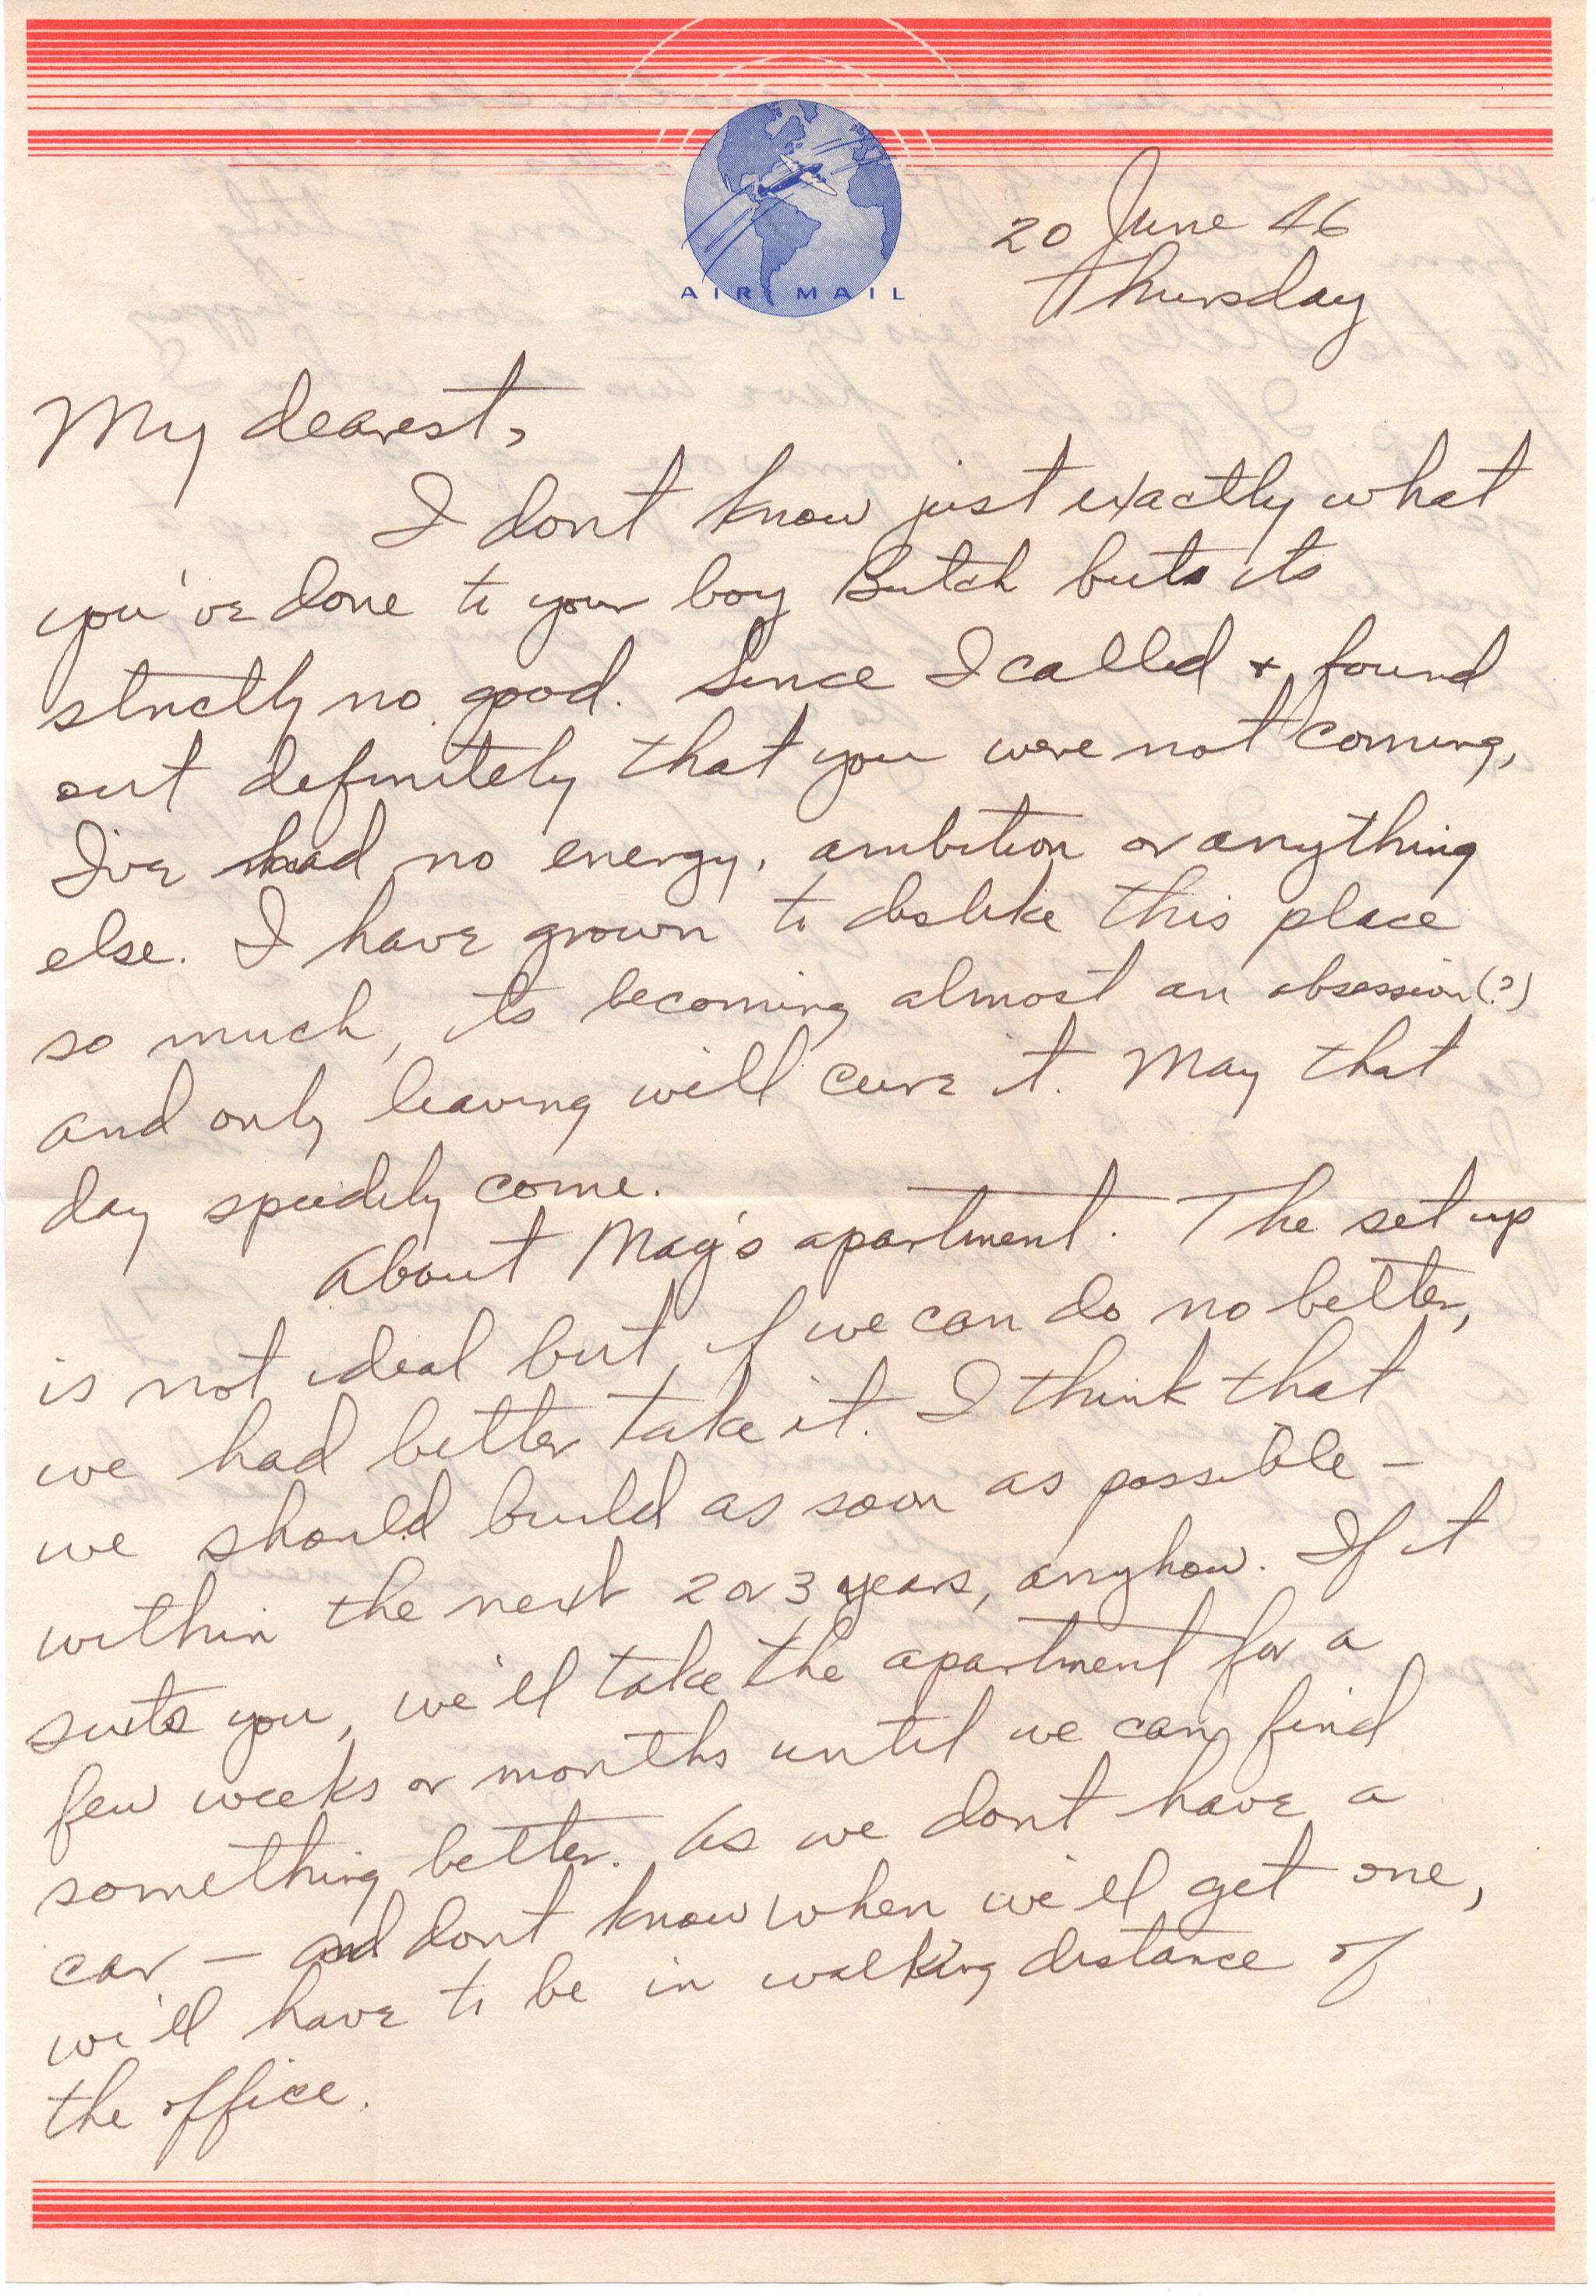 AIR MAIL
20 June 46
Thursday
My dearest,
I dont know just exactly what
you've done to your boy Butch but its
strictly no good. Since I called + found
out definitely that you were not coming,
I've had no energy, ambition or anything
else. I have grown to dislike this place
so much, its becoming almost an obsession(?)
and only leaving will cure it. May that
day speedily come.
About Mag's apartment. The set up
is not ideal but, if we can do no better,
we had better take it. I think that
we should build as soon as possible -
within the next 2 or 3 years, anyhow. If it
suits you, we'll take the apartment for a
few weeks or months until we can find
something better. As we dont have a
car - and dont know when we'll get one,
we'll have to be in walking distance of
the office.